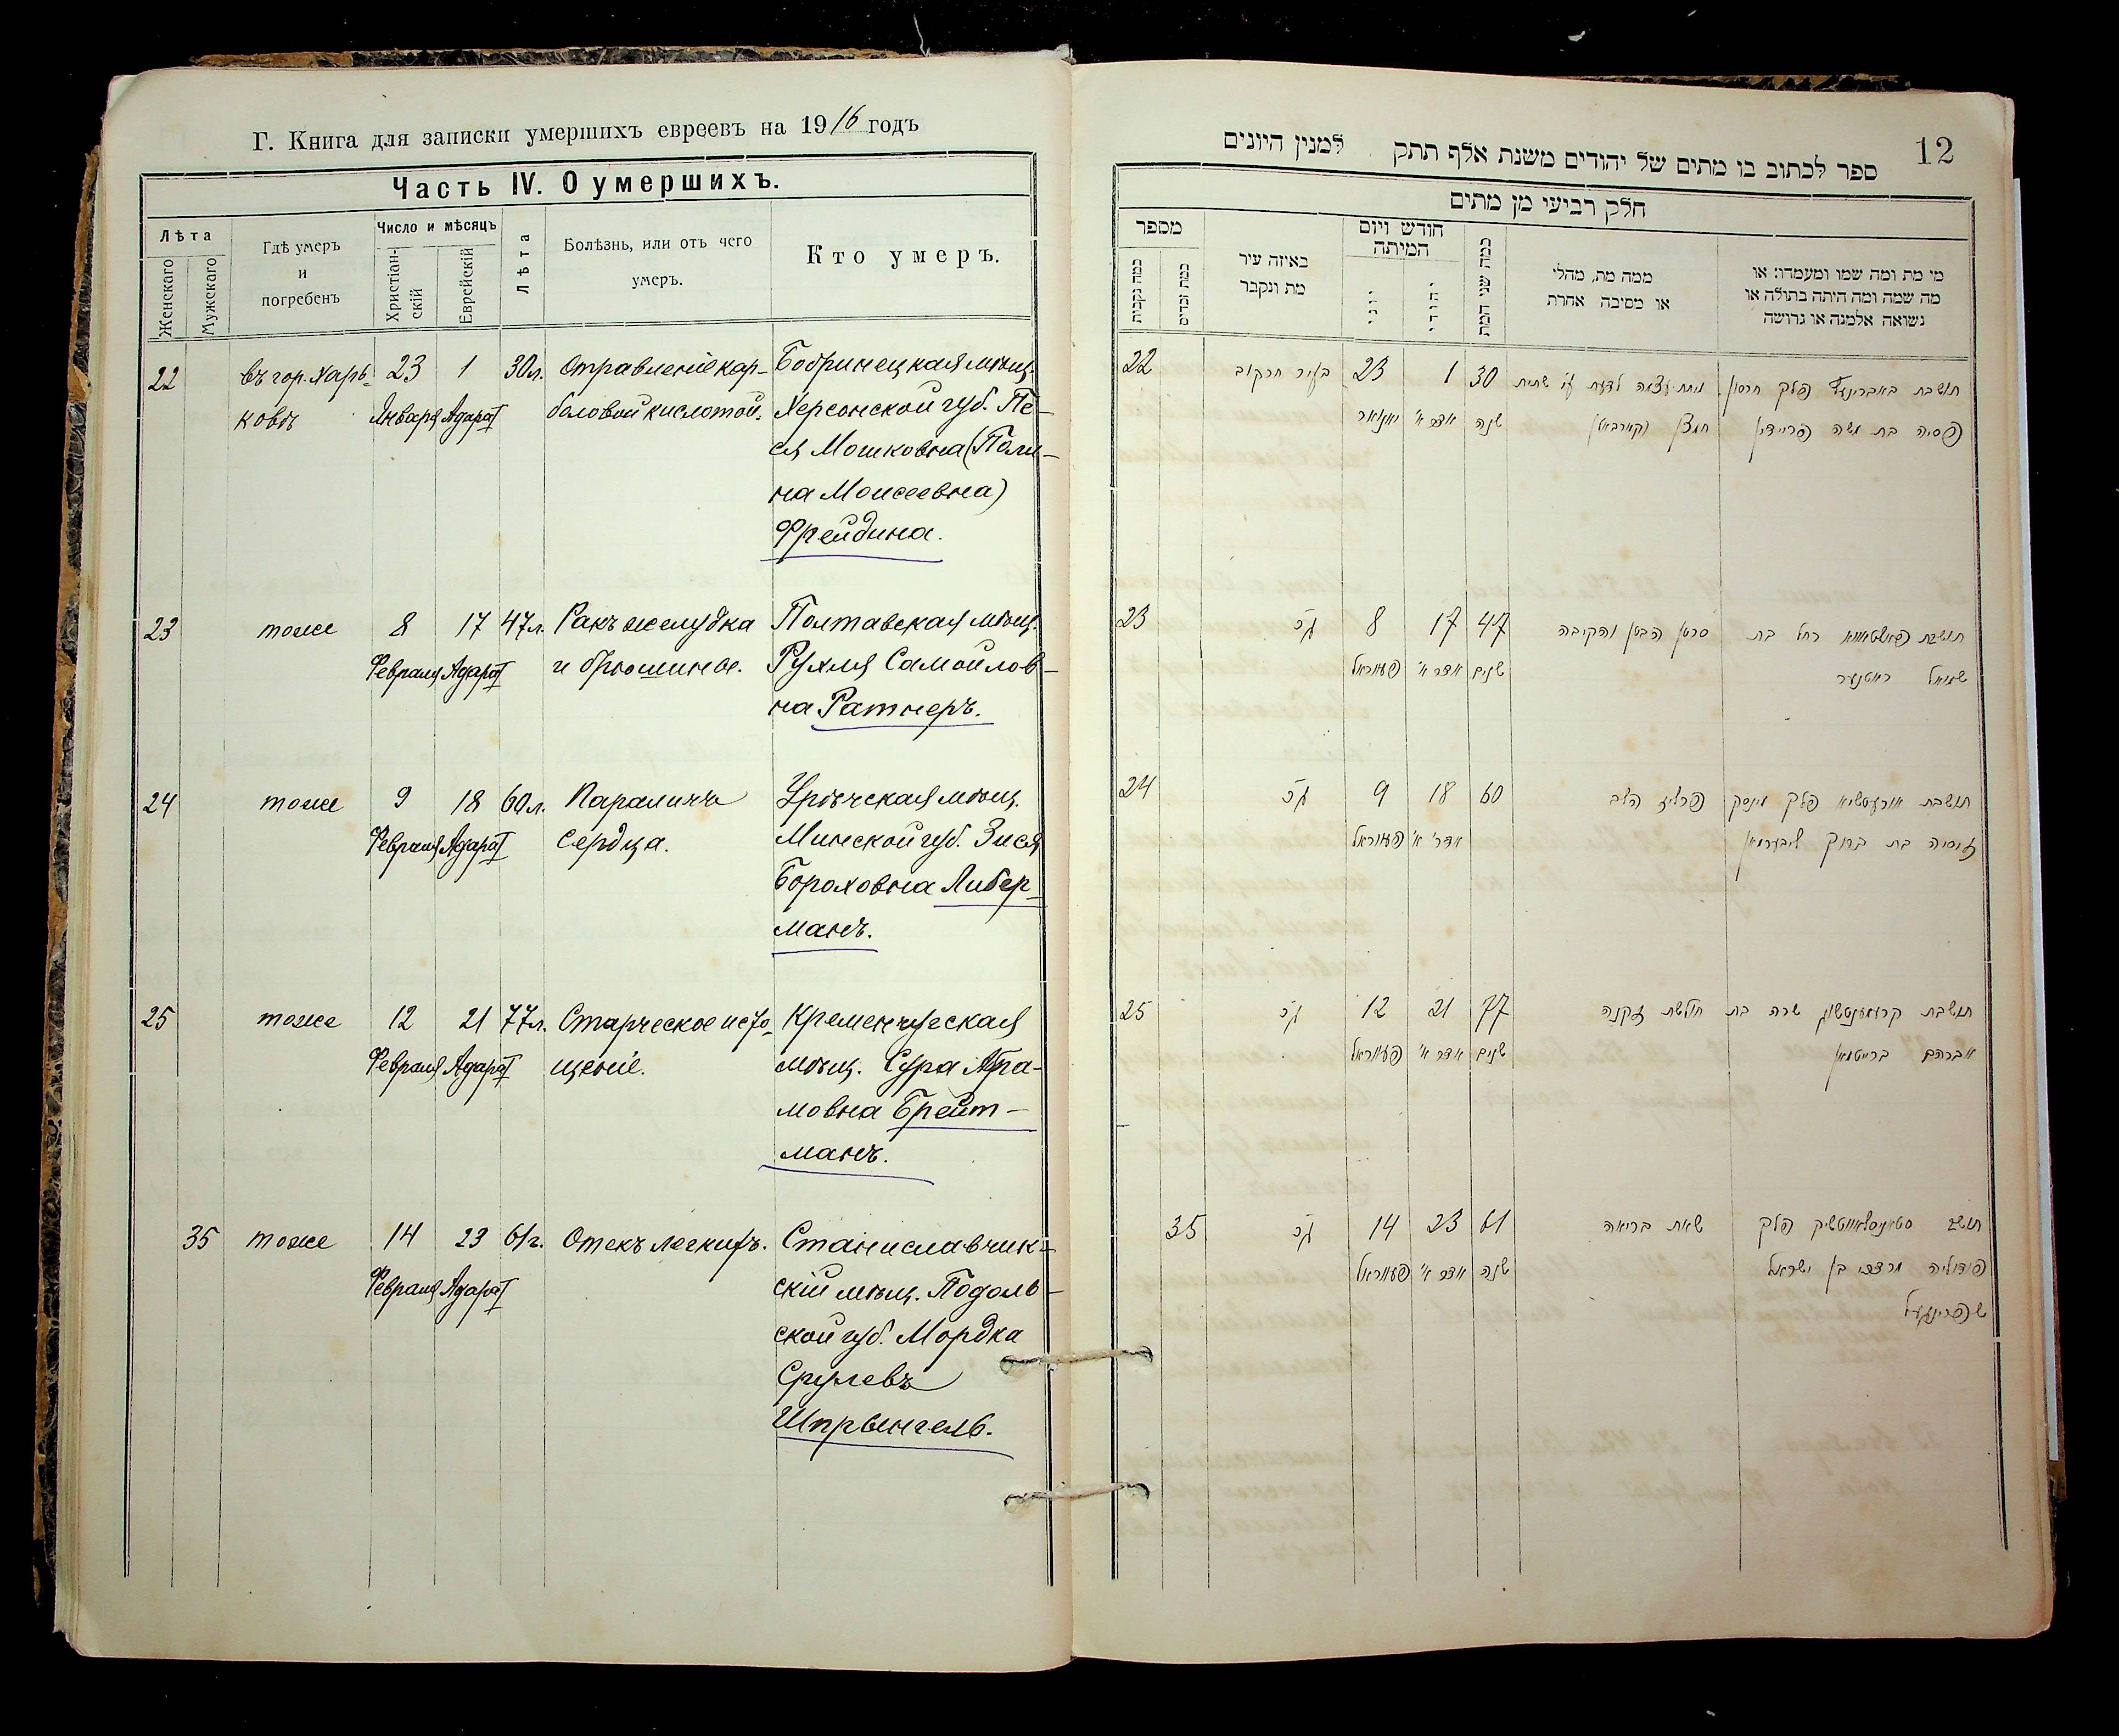 Г. Книга для записки умершихъ евреевъ на 1916 годъ
Часть IV. О умершихъ.
Лѣта
Женскаго
Мужскаго
Гдѣ умеръ
и
погребенъ
Число и мѣсяцъ
Христіан-
скій
Еврейскій
Лѣта
Болѣзнь, или отъ чего
умеръ.
Кто умеръ.
22 въ гор. Харь- 23 1 30 л. Отравленіе кар- Бобринецкая мѣщ.
ковѣ Января Адара I боловой кислотой. Херсонской губ. Пе-
ся Мошковна (Поли-
на Моисеевна)
Фрейдина.
23 тоже 8 17 47 л. Ракъ желудка Полтавская мѣщ.
Февраля Адара I и брюшины. Рухля Самойлов-
на Ратнеръ.
24 тоже 9 18 60 л. Параличъ Урѣчская мѣщ.
Февраля Адара I сердца. Минской губ. Зися
Бороховна Либер-
манъ.
25 тоже 12 21 77 л. Старческое исто- Кременчугская
Февраля Адара I щеніе. мѣщ. Сура Абра-
мовна Брейт-
манъ.
35 тоже 14 23 61 г. Отекъ легкихъ. Станиславчик-
Февраля Адара I скій мѣщ. Подоль-
ской губ. Мордка
Срулевъ
Шпрынгель.
12
ספר לכתוב בו מתים של יהודים משנת אלף תתק למנין היונים
חלק רביעי מן מתים
מספר
כמה נקבות
כמה זכרים
באיזה עיר
מת ונקבר
חודש ויום
המיתה
יוני
יהודי
כמה שני המת
ממה מת, מחלי
או מסיבה אחרת
מי מת ומה שמו ומעמדו: או
מה שמה ומה היתה בתולה או
נשואה אלמנה או גרושה
22 בעיר חרקוב 23 1 30 תושבת באברינעץ פלך חרסון
יאנואר אדר א' שנה פסיה בת משה פריידין
23 8 17 47 סרטן הבטן והקיבה תושבת פאלטאווא רחל בת
פעווראל אדר א' שנים שמואל ראטנער
24 9 18 60 תושבת פלך מינסק
פעווראל אדר א' זיסיה בת ברוך ליבערמאן
25 12 21 77 חולשת זקנה תושבת קרעמענטשוג שרה בת
פעווראל אדר א' שנים אברהם ברייטמאן
35 14 23 61 תושב סטאניסלאווטשיק פלך
פעווראל אדר א' שנה פודוליה מרדכי בן ישראל
שפרינגעל